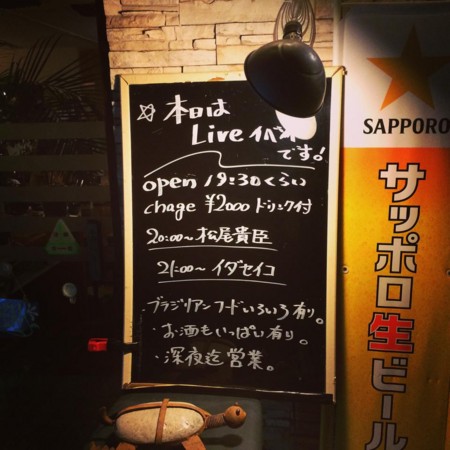 ☆本日は
Live イベント
です!
open 19:30くらい
chage ¥2000 ドリンク付
20:00〜 松尾貴臣
21:00〜 イダセイコ
・ブラジリアンフードいろいろ有り。
・お酒もいっぱい有り。
・深夜迄営業。
SAPPORO
サッポロ生ビール